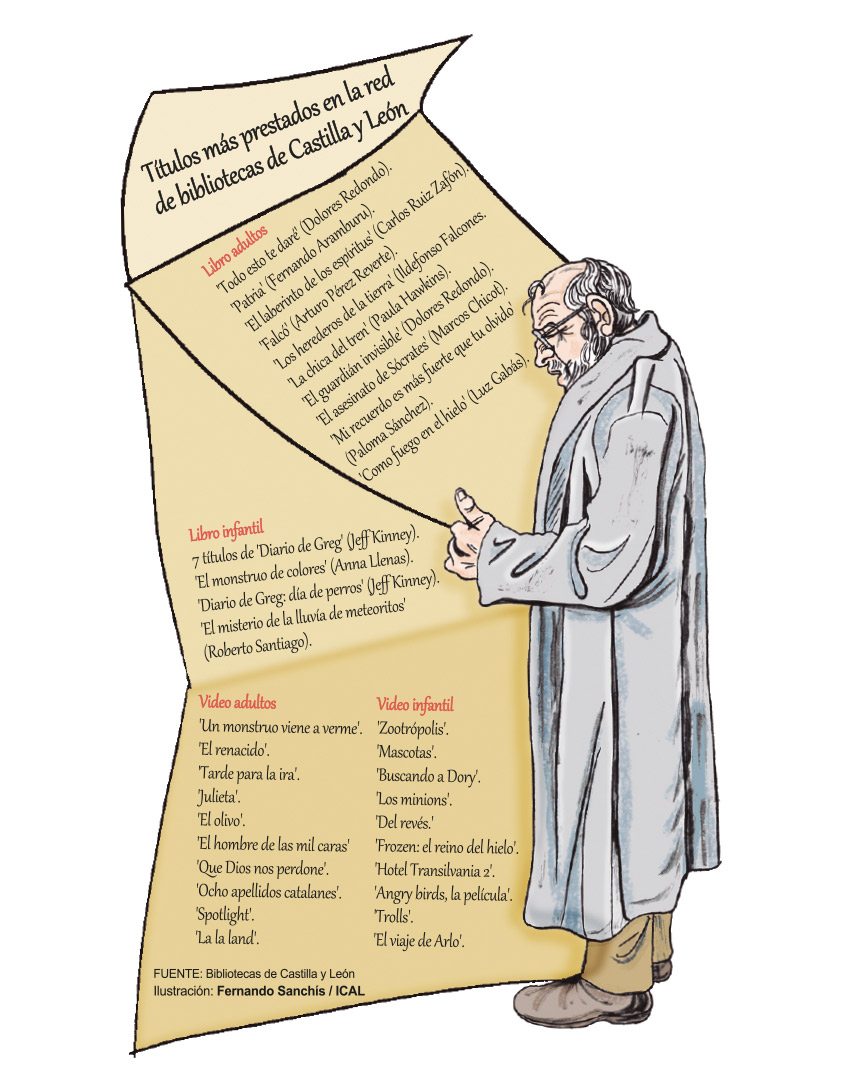 Títulos más prestados en la red
de bibliotecas de Castilla y León
Libro adultos
'Todo esto te daré' (Dolores Redondo).
'Patria' (Fernando Aramburu).
'El laberinto de los espíritus' (Carlos Ruiz Zafón).
'Falcó' (Arturo Pérez Reverte).
'Los herederos de la tierra' (Ildefonso Falcones.
'La chica del tren' (Paula Hawkins).
'El guardián invisible' (Dolores Redondo).
'El asesinato de Sócrates' (Marcos Chicot).
'Mi recuerdo es más fuerte que tu olvido'
(Paloma Sánchez).
'Como fuego en el hielo' (Luz Gabás).
Libro infantil
7 títulos de 'Diario de Greg' (Jeff Kinney).
'El monstruo de colores' (Anna Llenas).
'Diario de Greg: día de perros' (Jeff Kinney).
'El misterio de la lluvía de meteoritos'
(Roberto Santiago).
Video adultos
'Un monstruo viene a verme'.
'El renacido'.
'Tarde para la ira'.
'Julieta'.
'El olivo'.
'El hombre de las mil caras'
'Que Dios nos perdone'.
'Ocho apellidos catalanes'.
'Spotlight'.
'La la land'.
Video infantil
'Zootrópolis'.
'Mascotas'.
'Buscando a Dory'.
'Los minions'.
'Del revés.'
'Frozen: el reino del hielo'.
'Hotel Transilvania 2'.
'Angry birds, la película'.
'Trolls'.
'El viaje de Arlo'.
FUENTE: Bibliotecas de Castilla y León
Ilustración: Fernando Sanchís / ICAL